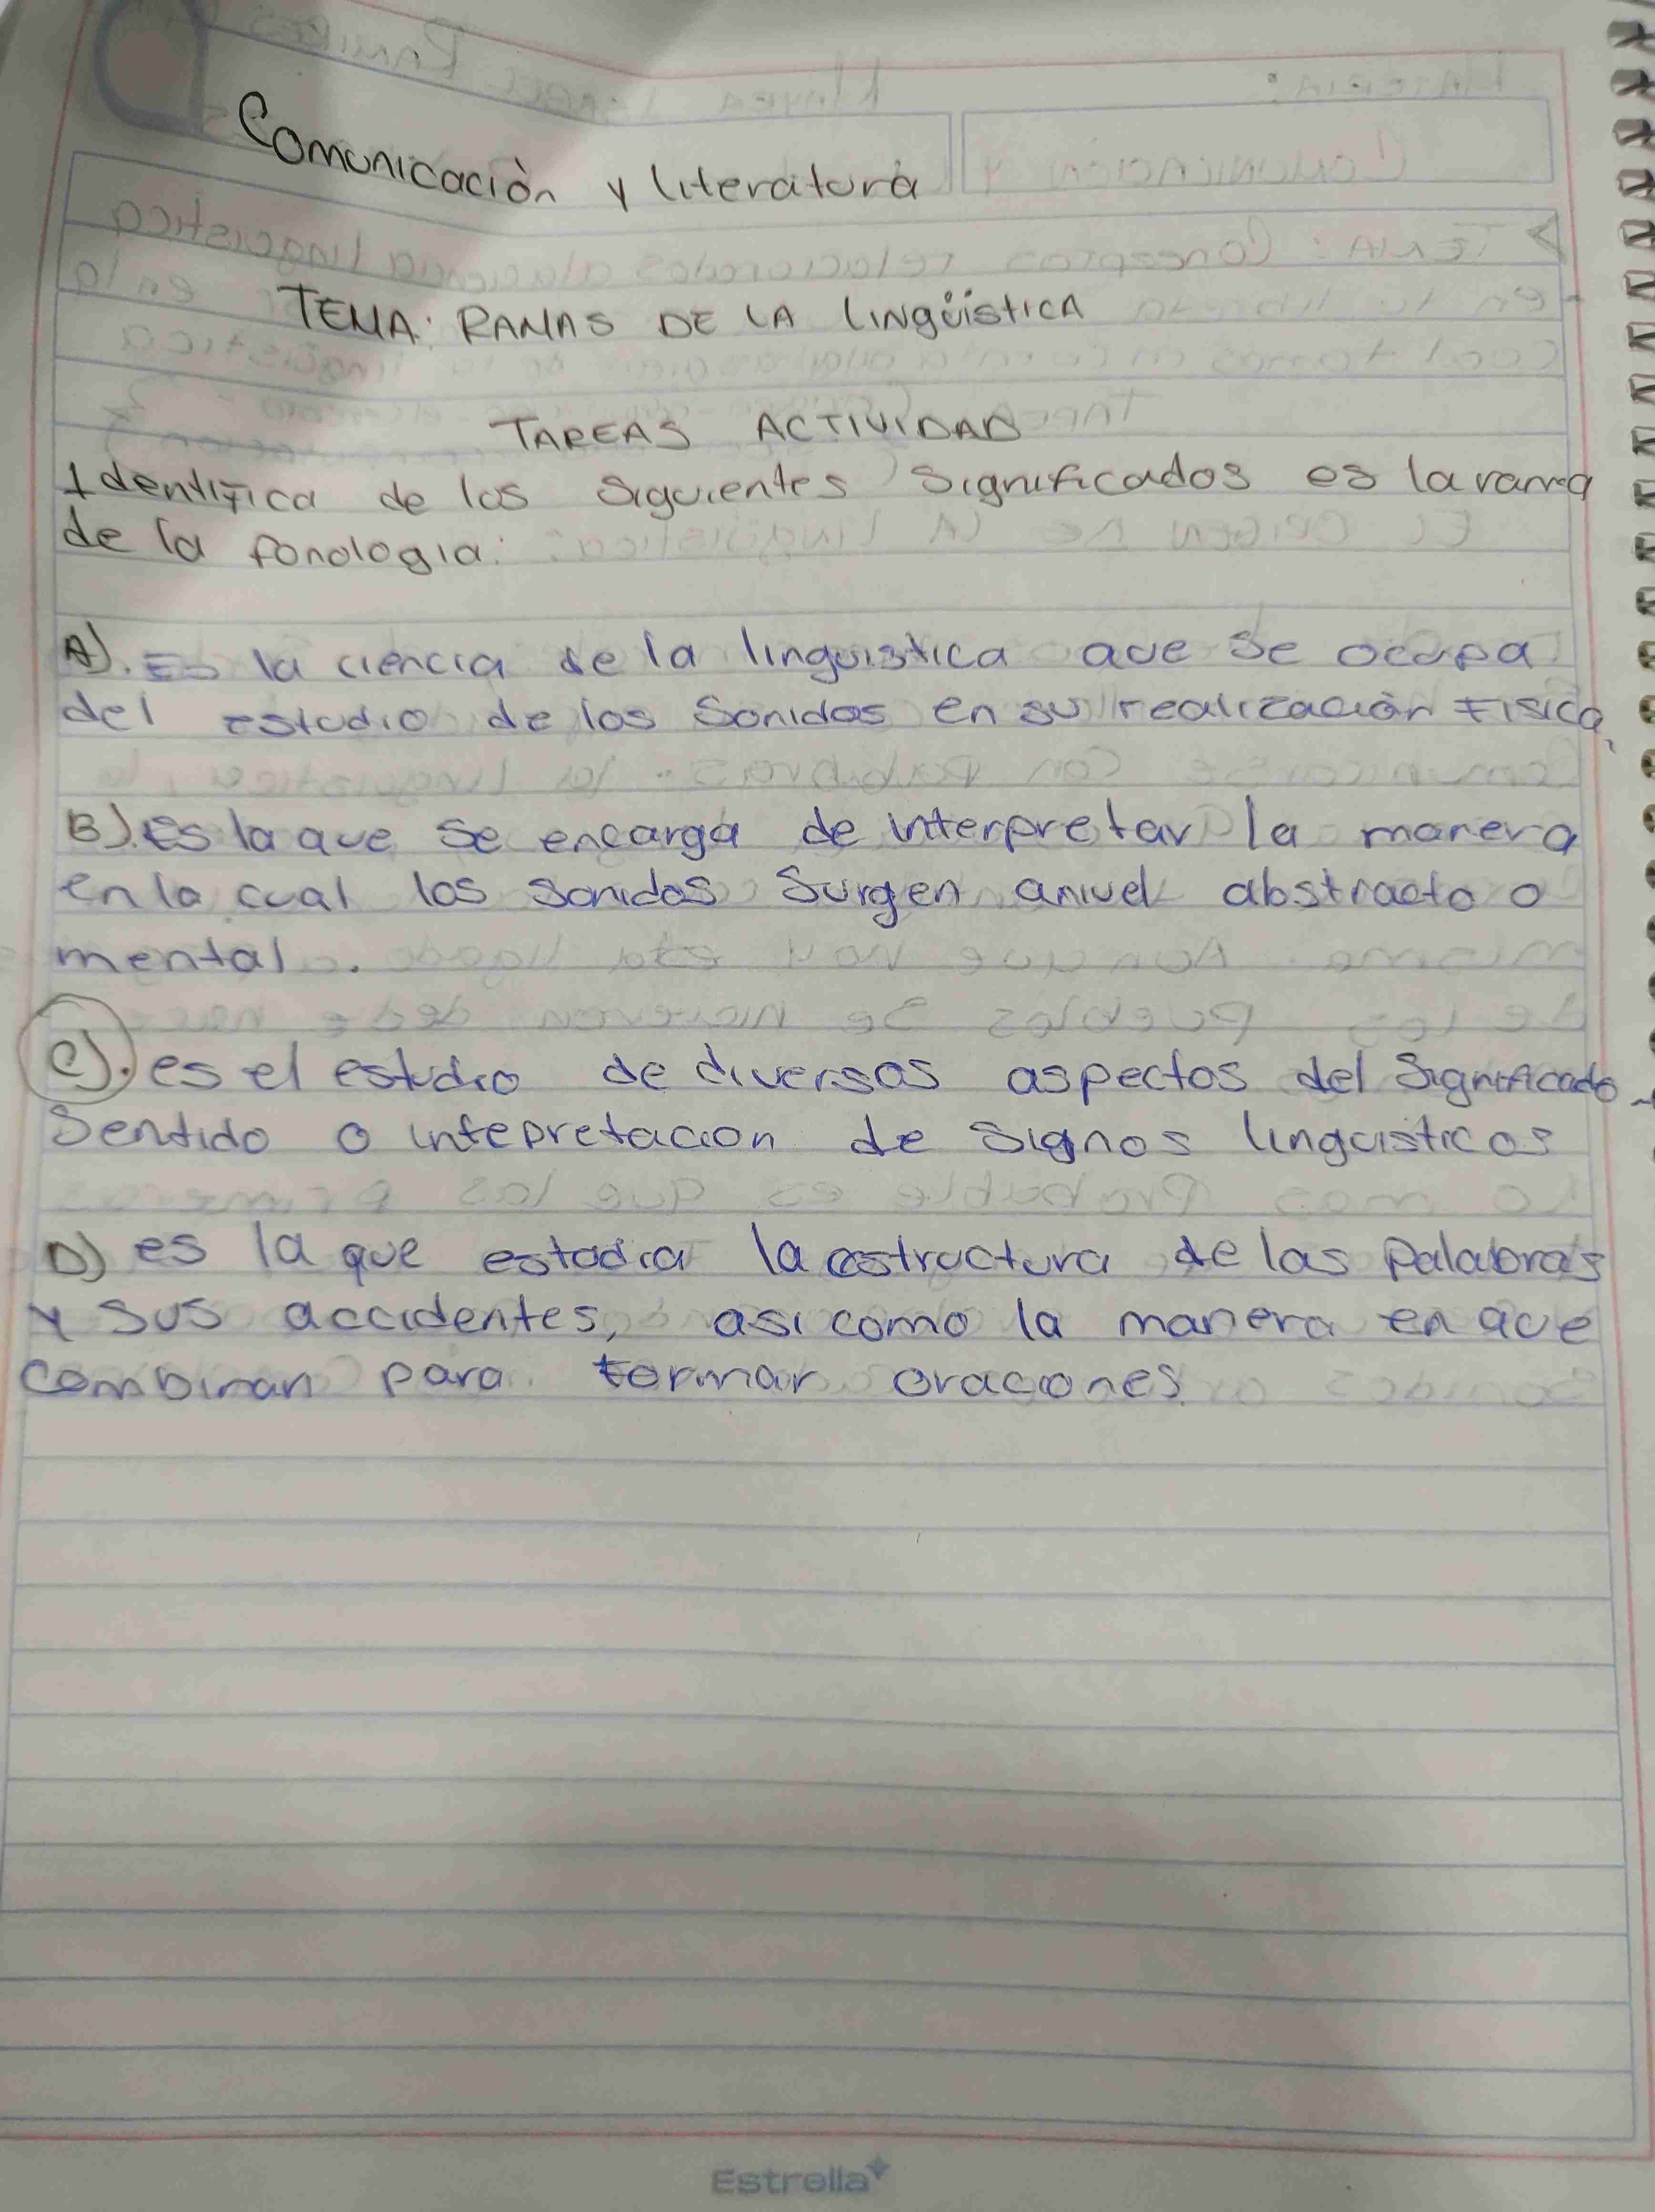 Comunicación y literatura
TEMA: RAMAS DE LA LINgüísticA
TAREAS ACTIVIDAD
Identifica de los siguientes significados es la rama
de la fonología:
A). Es la ciencia de la linguistica que se ocupa
del estudio de los sonidos en su realización Fisica,
B). Es la que se encarga de interpretar la manera
en la cual los sonidos surgen a nivel abstracto o
mental.
C). es el estudio de diversos aspectos del significado
Sentido o intepretacion de signos linguisticos
D) es la que estudia la estructura de las palabras
y sus accidentes, asi como la manera en que
combinan para formar oraciones.
Estrella